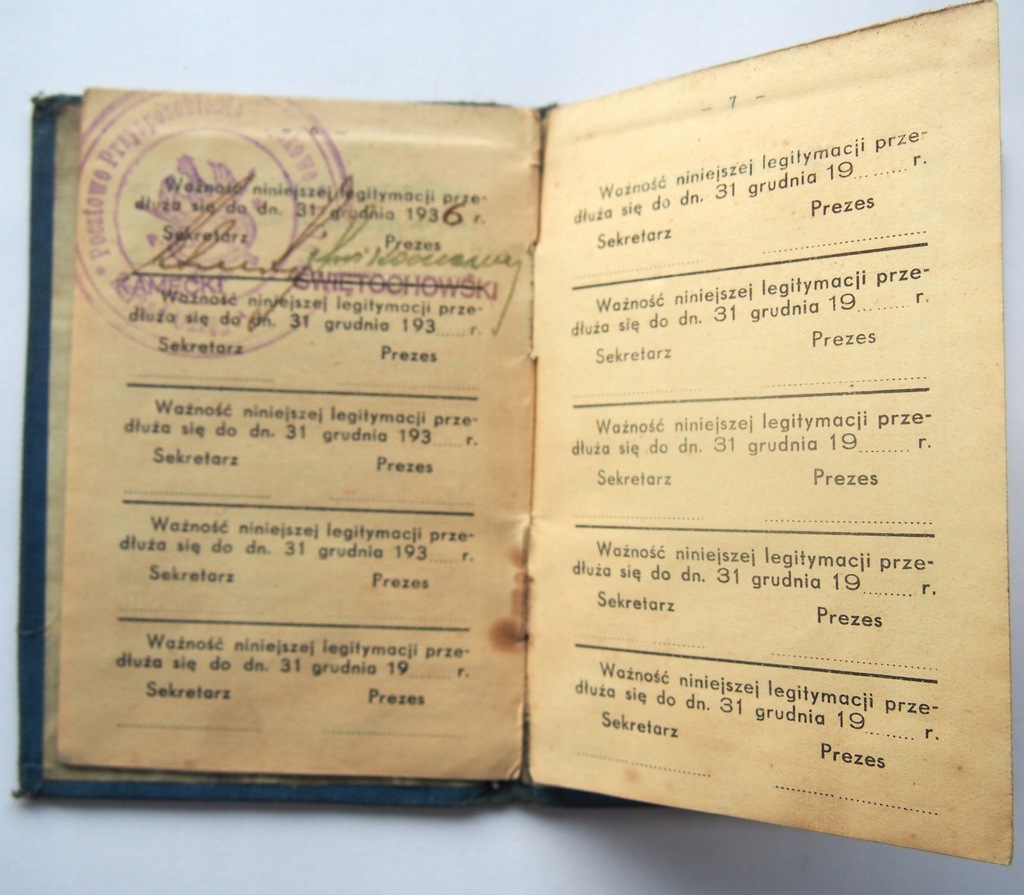 Pocztowe Przysposobienia
Ważność niniejszej legitymacji prze-
dłuża się do dn. 31 grudnia 1936 r.
Sekretarz Prezes
ŁAMECKI ŚWIĘTOCHOWSKI
Ważność niniejszej legitymacji prze-
dłuża się do dn. 31 grudnia 193..... r.
Sekretarz Prezes
Ważność niniejszej legitymacji prze-
dłuża się do dn. 31 grudnia 193..... r.
Sekretarz Prezes
Ważność niniejszej legitymacji prze-
dłuża się do dn. 31 grudnia 193..... r.
Sekretarz Prezes
Ważność niniejszej legitymacji prze-
dłuża się do dn. 31 grudnia 19........ r.
Sekretarz Prezes
– 7 –
Ważność niniejszej legitymacji prze-
dłuża się do dn. 31 grudnia 19......... r.
Sekretarz Prezes
Ważność niniejszej legitymacji prze-
dłuża się do dn. 31 grudnia 19......... r.
Sekretarz Prezes
Ważność niniejszej legitymacji prze-
dłuża się do dn. 31 grudnia 19......... r.
Sekretarz Prezes
Ważność niniejszej legitymacji prze-
dłuża się do dn. 31 grudnia 19......... r.
Sekretarz Prezes
Ważność niniejszej legitymacji prze-
dłuża się do dn. 31 grudnia 19......... r.
Sekretarz Prezes